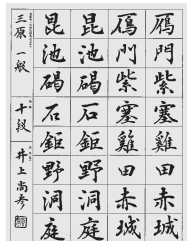 鴈門紫塞雞田赤城
鴈門紫塞雞田赤城
昆池碣石鉅野洞庭
昆池碣石鉅野洞庭
三原 一般 十段 井上尚